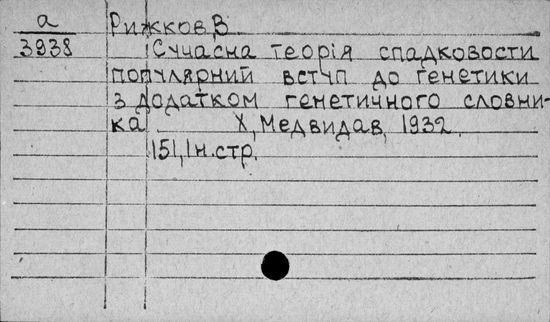 а
3938
Рижков, В
Сучасна теорія спадковости
популярний вступ до генетики
з додатком генетичного словни-
ка Х, Медвидав, 1932.
151, 1 н. стр.